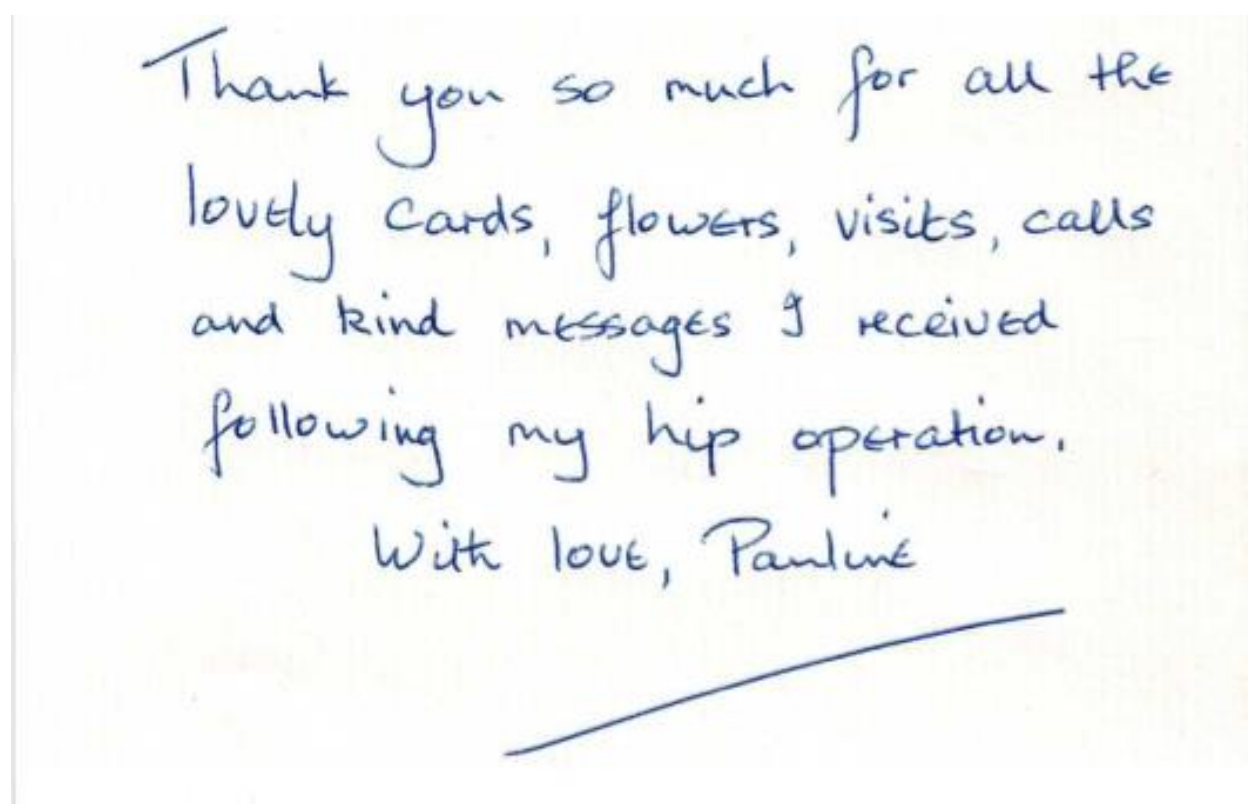 Thank you so much for all the
lovely cards, flowers, visits, calls
and kind messages I received
following my hip operation.
With love, Pauline